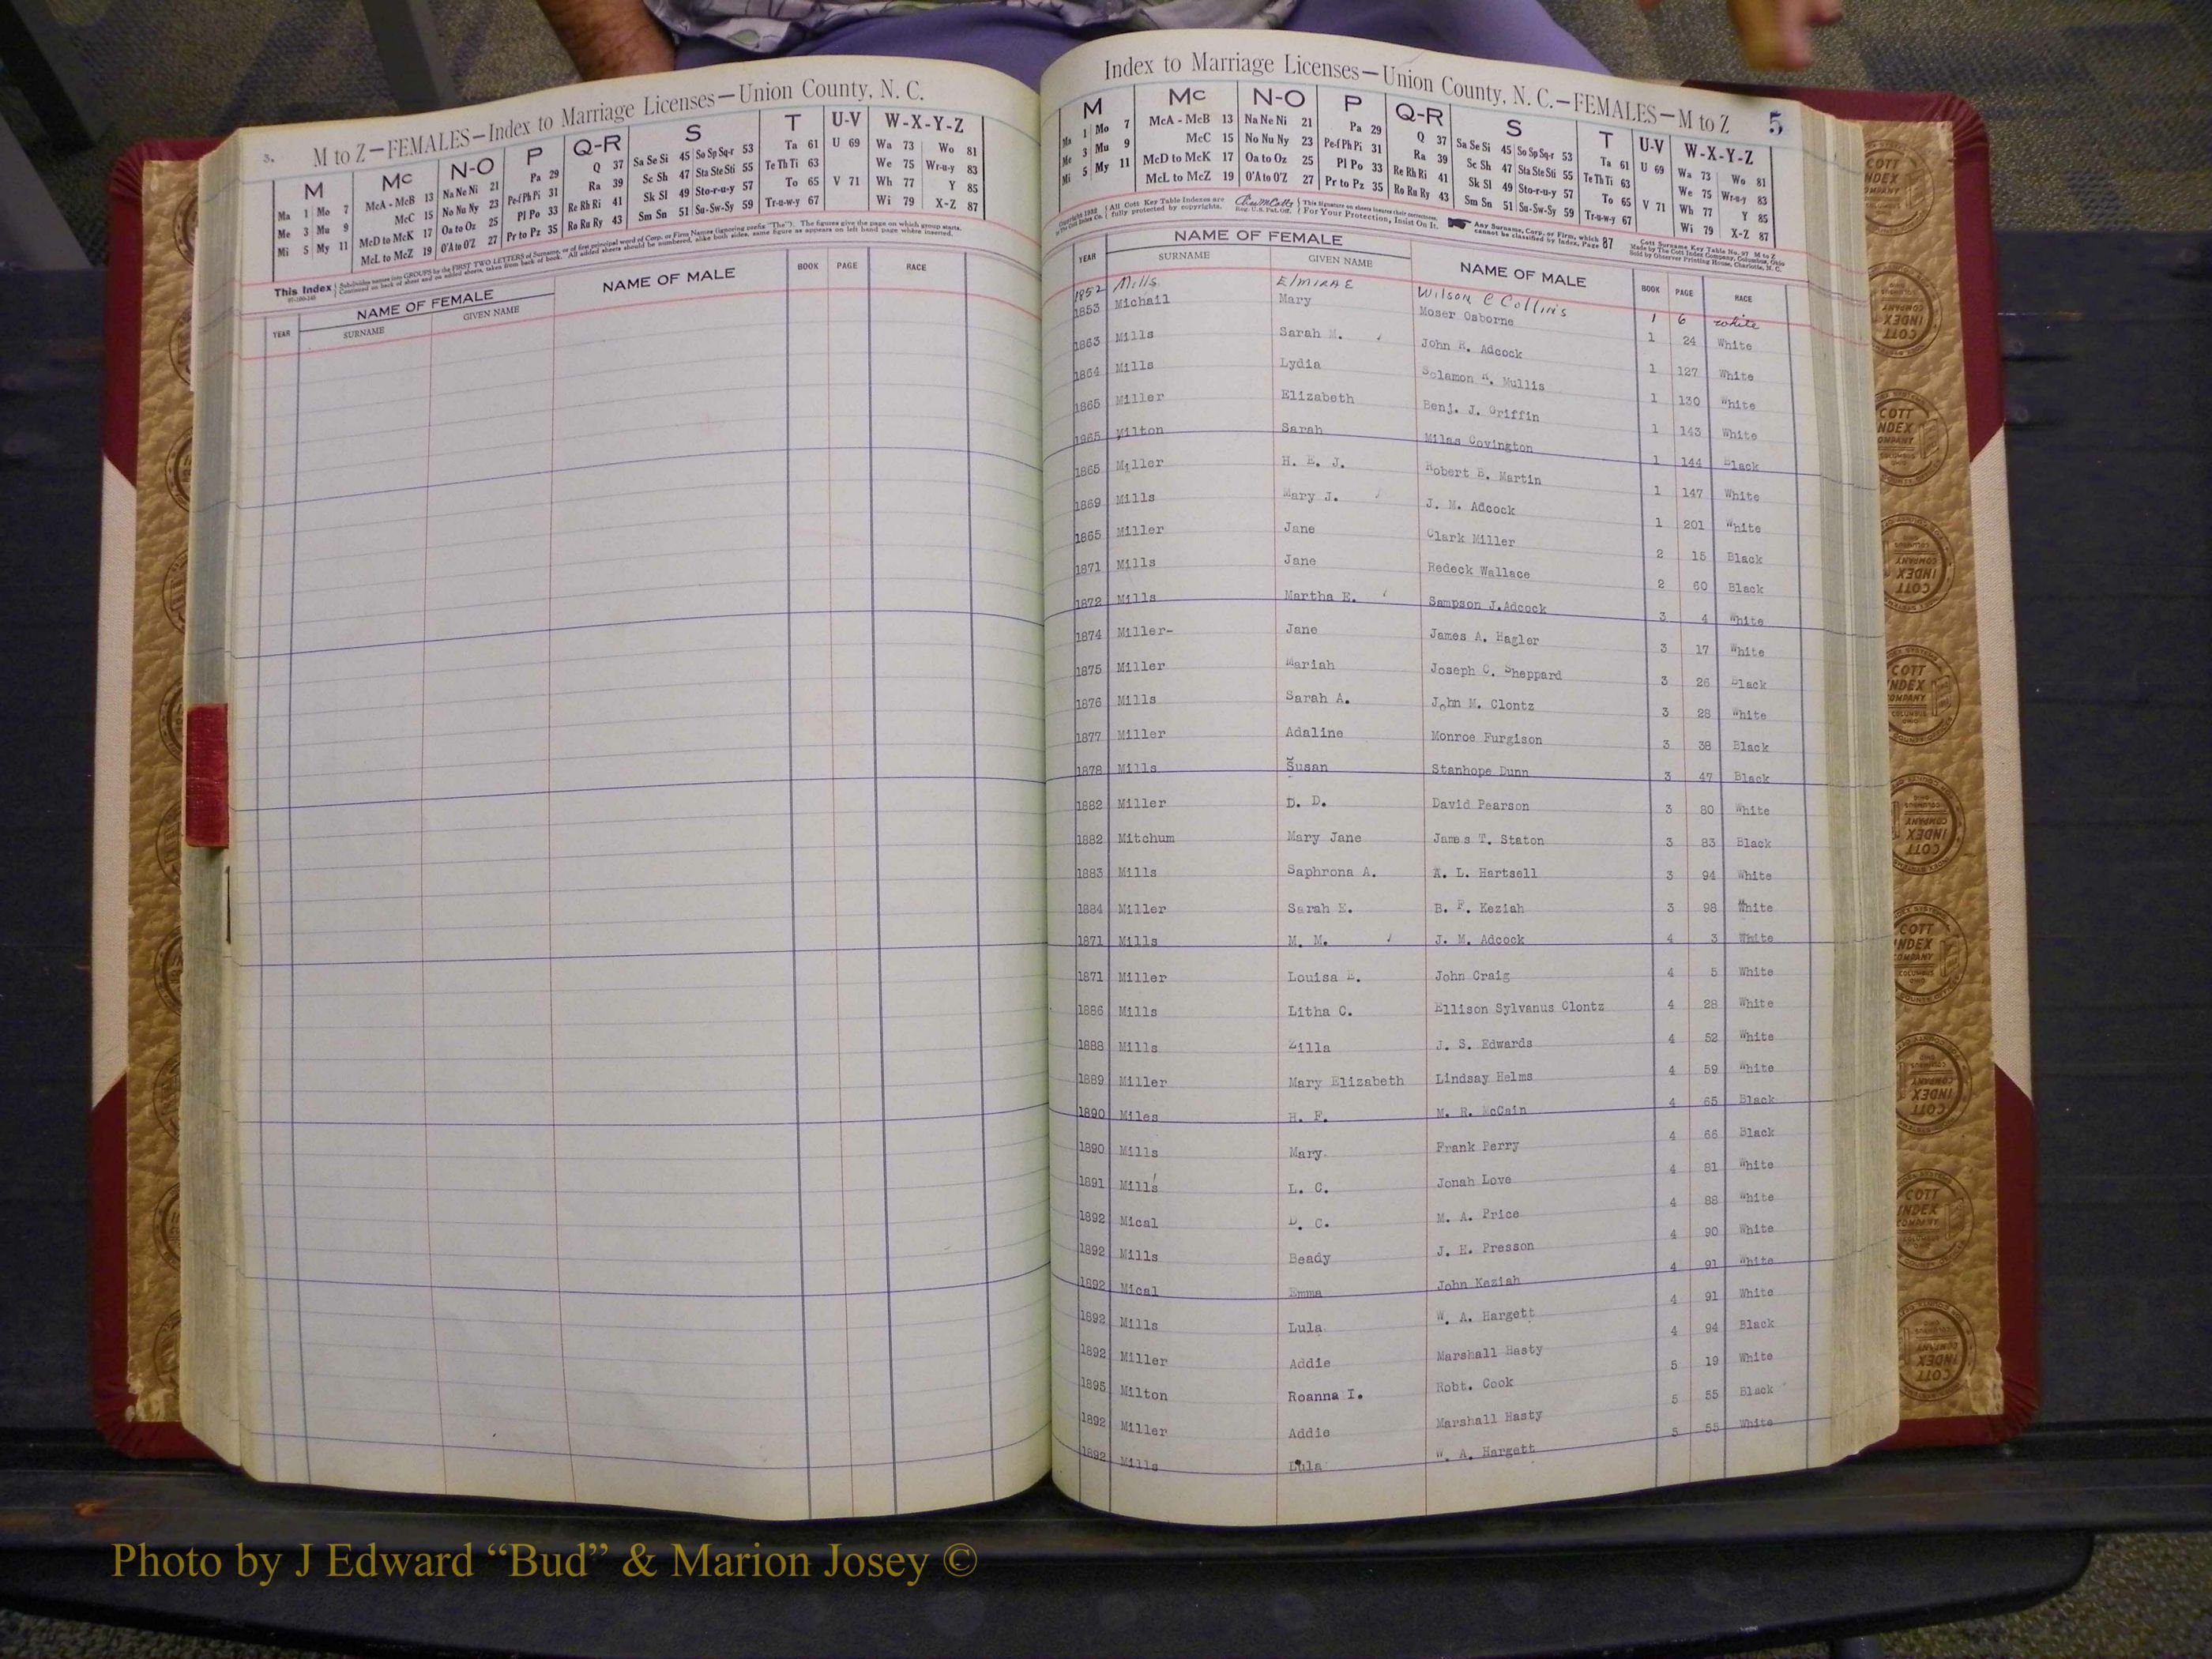 3. M to Z—FEMALES—Index to Marriage Licenses—Union County, N. C.
M Mc N-O P Q-R S T U-V W-X-Y-Z
Ma 1 Mo 7 McA - McB 13 Na Ne Ni 21 Pa 29 Q 37 Sa Se Si 45 So Sp Sq-r 53 Ta 61 U 69 Wa 73 Wo 81
Me 3 Mu 9 McC 15 No Nu Ny 23 Pe-f Ph Pi 31 Ra 39 Sc Sh 47 Sta Ste Sti 55 Te Th Ti 63 We 75 Wr-u-y 83
Mi 5 My 11 McD to McK 17 Oa to Oz 25 Pl Po 33 Re Rh Ri 41 Sk Sl 49 Sto-r-u-y 57 To 65 V 71 Wh 77 Y 85
McL to McZ 19 O'A to O'Z 27 Pr to Pz 35 Ro Ru Ry 43 Sm Sn 51 Su-Sw-Sy 59 Tr-u-w-y 67 Wi 79 X-Z 87
This Index
YEAR NAME OF FEMALE NAME OF MALE BOOK PAGE RACE
SURNAME GIVEN NAME
Index to Marriage Licenses—Union County, N. C.—FEMALES—M to Z 5
M Mc N-O P Q-R S T U-V W-X-Y-Z
Ma 1 Mo 7 McA - McB 13 Na Ne Ni 21 Pa 29 Q 37 Sa Se Si 45 So Sp Sq-r 53 Ta 61 U 69 Wa 73 Wo 81
Me 3 Mu 9 McC 15 No Nu Ny 23 Pe-f Ph Pi 31 Ra 39 Sc Sh 47 Sta Ste Sti 55 Te Th Ti 63 We 75 Wr-u-y 83
Mi 5 My 11 McD to McK 17 Oa to Oz 25 Pl Po 33 Re Rh Ri 41 Sk Sl 49 Sto-r-u-y 57 To 65 V 71 Wh 77 Y 85
McL to McZ 19 O'A to O'Z 27 Pr to Pz 35 Ro Ru Ry 43 Sm Sn 51 Su-Sw-Sy 59 Tr-u-w-y 67 Wi 79 X-Z 87
All Cott Key Table Indexes are fully protected by copyrights.
For Your Protection, Insist On It.
Any Surname, Corp. or Firm, which cannot be classified by Index, Page 87
YEAR NAME OF FEMALE NAME OF MALE BOOK PAGE RACE
SURNAME GIVEN NAME
1852 Mills Elmirae Wilson C Collins 1 6 white
1853 Michail Mary Moser Osborne 1 24 White
1863 Mills Sarah M. John R. Adcock 1 127 White
1864 Mills Lydia Solamon R. Mullis 1 130 White
1865 Miller Elizabeth Benj. J. Griffin 1 143 White
1865 Milton Sarah Miles Covington 1 144 Black
1865 Miller H. E. J. Robert B. Martin 1 147 White
1869 Mills Mary J. J. M. Adcock 1 201 White
1865 Miller Jane Clark Miller 2 15 Black
1871 Mills Jane Redeck Wallace 2 60 Black
1872 Mills Martha E. Sampson J.Adcock 3 4 White
1874 Miller- Jane James A. Hagler 3 17 White
1875 Miller Mariah Joseph C. Sheppard 3 26 Black
1876 Mills Sarah A. John M. Clontz 3 28 White
1877 Miller Adaline Monroe Furgison 3 38 Black
1878 Mills Susan Stanhope Dunn 3 47 Black
1882 Miller D. D. David Pearson 3 80 White
1882 Mitchum Mary Jane James T. Staton 3 83 Black
1883 Mills Saphrona A. A. L. Hartsell 3 94 White
1884 Miller Sarah E. B. F. Keziah 3 98 White
1871 Mills M. M. J. M. Adcock 4 3 White
1871 Miller Louisa E. John Craig 4 5 White
1886 Mills Litha C. Ellison Sylvanus Clontz 4 28 White
1888 Mills Zilla J. S. Edwards 4 52 White
1889 Miller Mary Elizabeth Lindsay Helms 4 59 White
1890 Miles H. F. M. R. McCain 4 65 Black
1890 Mills Mary Frank Perry 4 66 Black
1891 Mills L. C. Jonah Love 4 81 White
1892 Mical D. C. M. A. Price 4 88 White
1892 Mills Beady J. H. Presson 4 90 White
1892 Mical Emma John Keziah 4 91 White
1892 Mills Lula W. A. Hargett 4 91 White
1892 Miller Addie Marshall Hasty 4 94 Black
1895 Milton Roanna I. Robt. Cook 5 19 White
1892 Miller Addie Marshall Hasty 5 55 Black
1892 Mills Lula W. A. Hargett 5 55 White
Photo by J Edward “Bud” & Marion Josey ©